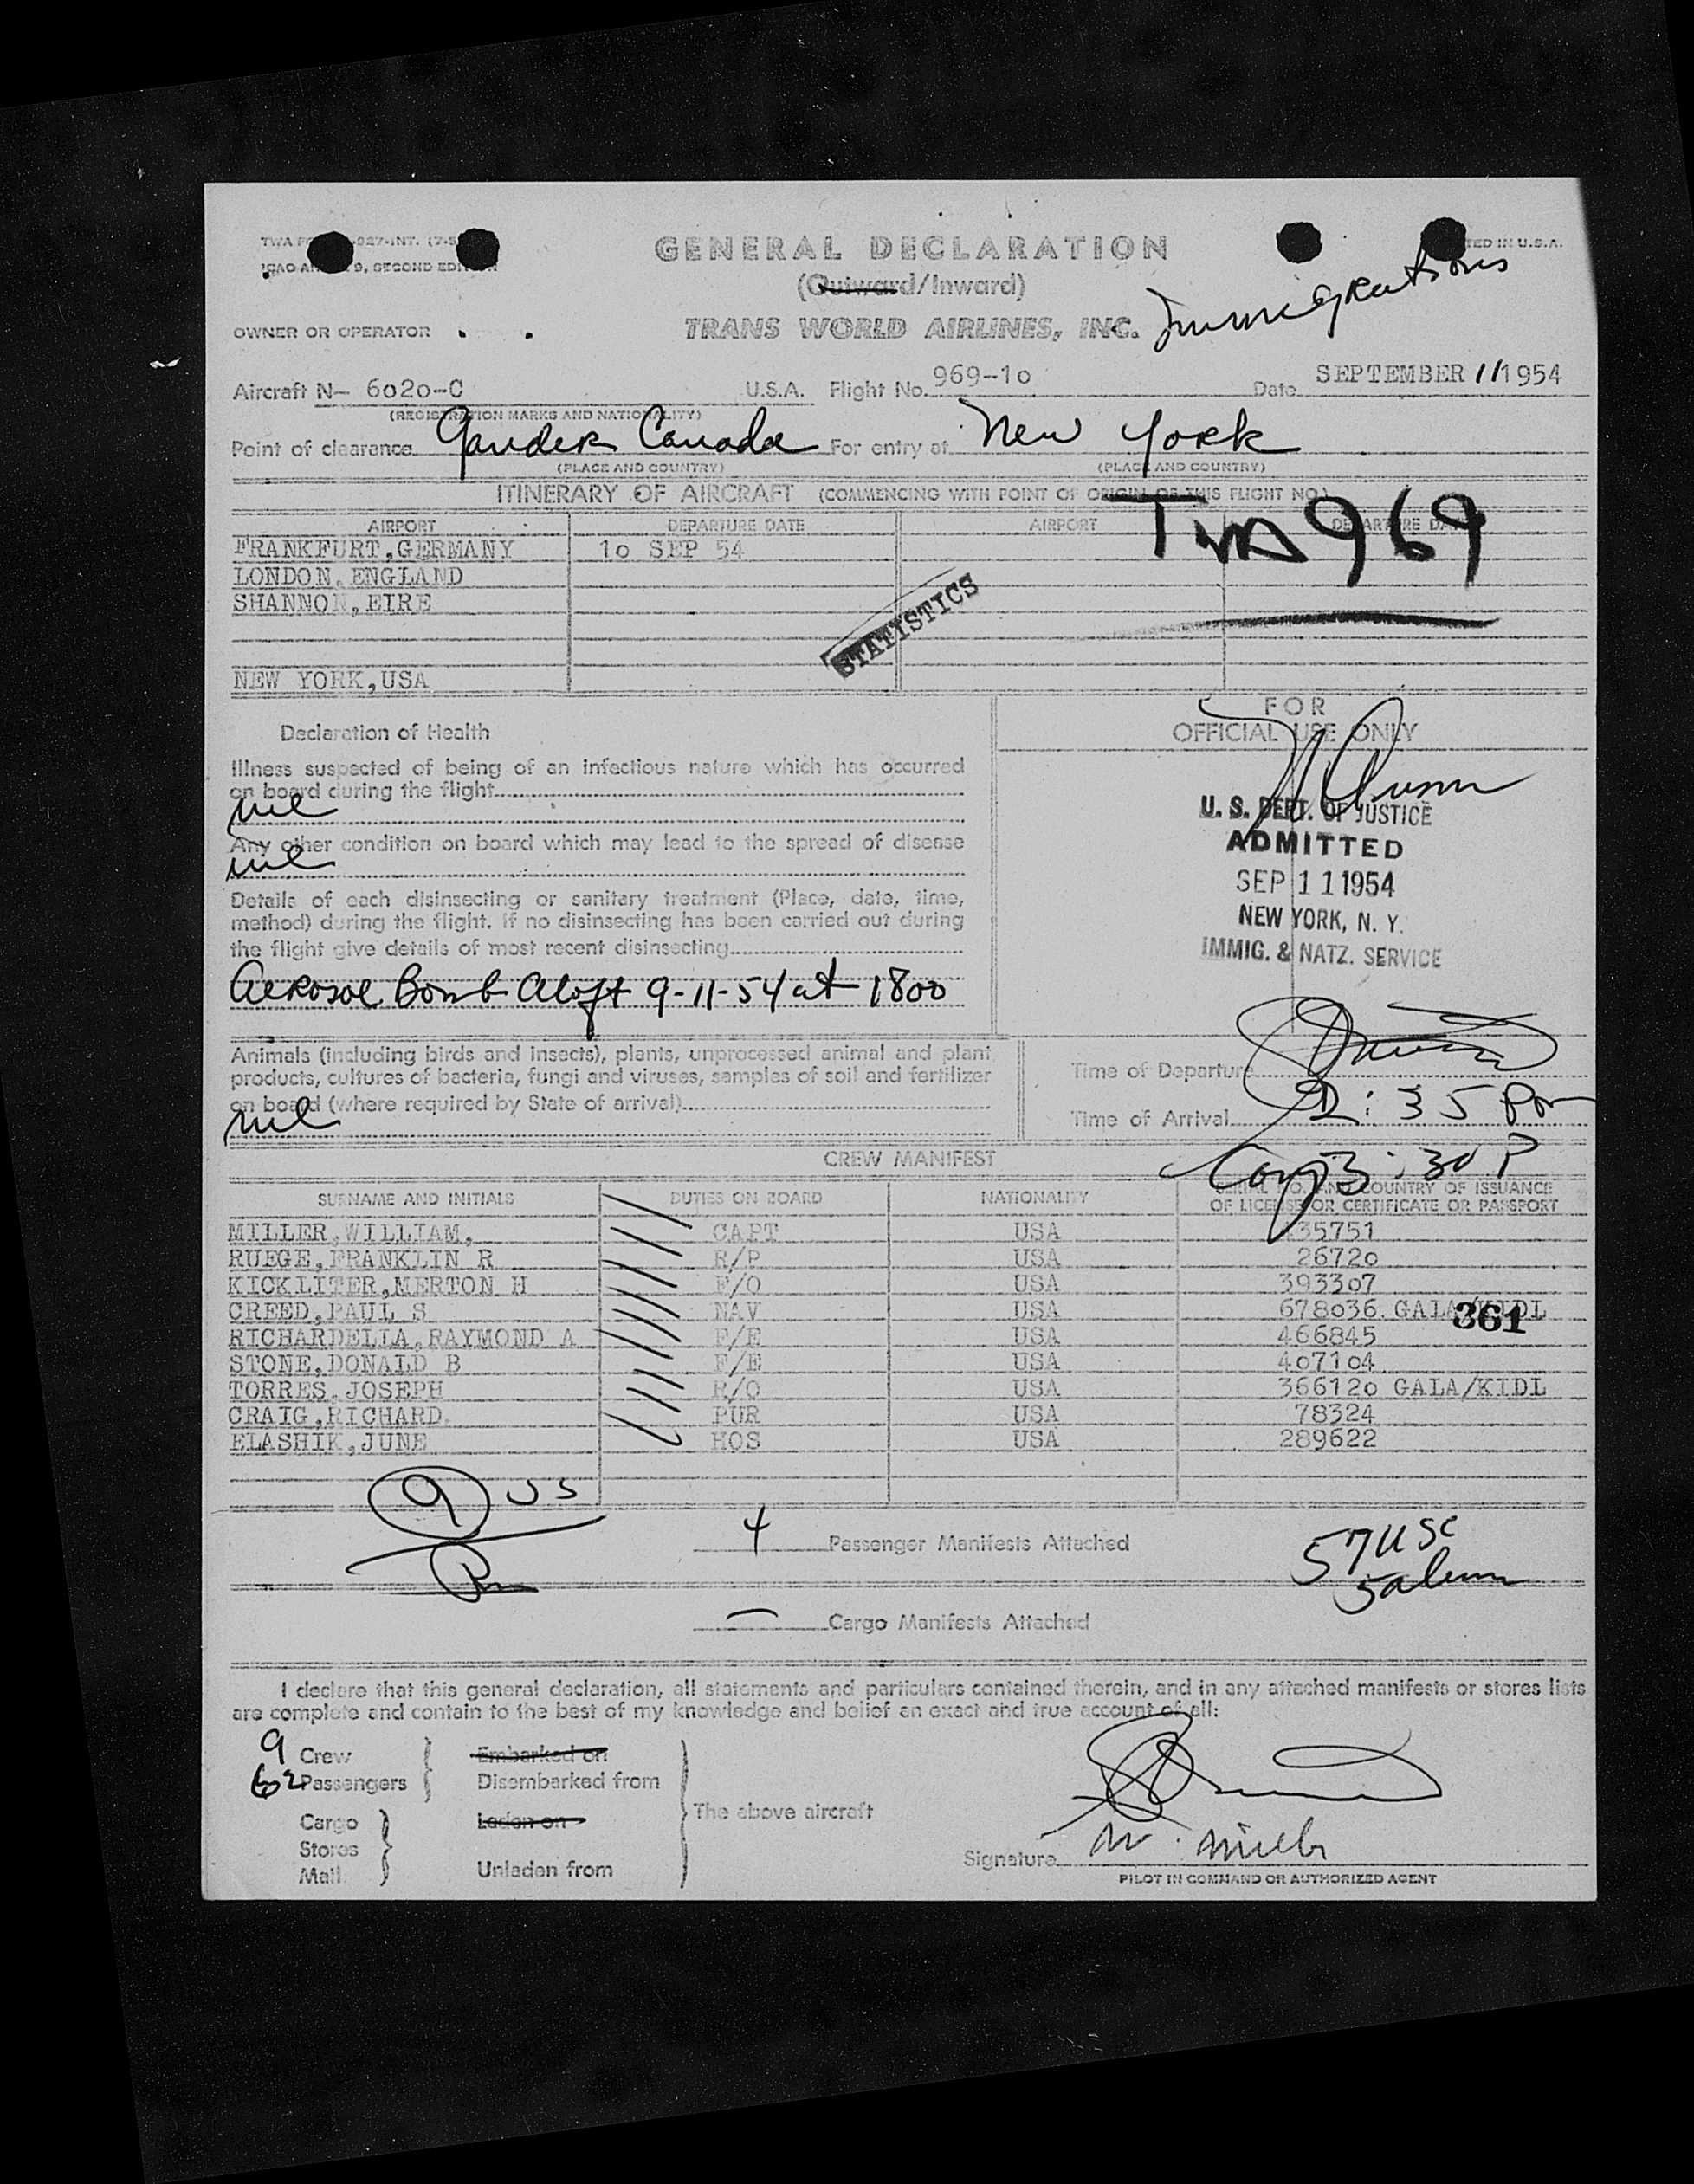 GENERAL DECLARATION
(Outward/Inward)
OWNER OR OPERATOR
TRANS WORLD AIRLINES, INC.
Immigrations
Aircraft N- 6020-C U.S.A. Flight No. 969-10 Date SEPTEMBER 11 1954
(REGISTRATION MARKS AND NATIONALITY)
Point of clearance Gander Canada For entry at New York
(PLACE AND COUNTRY) (PLACE AND COUNTRY)
ITINERARY OF AIRCRAFT (COMMENCING WITH POINT OF ORIGIN OF THIS FLIGHT NO.)
AIRPORT DEPARTURE DATE AIRPORT DEPARTURE DATE
969
FRANKFURT,GERMANY 10 SEP 54
LONDON, ENGLAND
SHANNON, EIRE
STATISTICS
NEW YORK,USA
Declaration of Health
FOR
OFFICIAL USE ONLY
Illness suspected of being of an infectious nature which has occurred
on board during the flight
nil
Any other condition on board which may lead to the spread of disease
nil
Details of each disinsecting or sanitary treatment (Place, date, time,
method) during the flight. If no disinsecting has been carried out during
the flight give details of most recent disinsecting
Aerosol Bomb Aloft 9-11-54 at 1800
U. S. DEPT. OF JUSTICE
ADMITTED
SEP 11 1954
NEW YORK, N. Y.
IMMIG. & NATZ. SERVICE
Animals (including birds and insects), plants, unprocessed animal and plant
products, cultures of bacteria, fungi and viruses, samples of soil and fertilizer
on board (where required by State of arrival)
nil
Time of Departure
Time of Arrival 2:35 Pm
3:30 P
CREW MANIFEST
SURNAME AND INITIALS DUTIES ON BOARD NATIONALITY SERIAL NO. AND COUNTRY OF ISSUANCE
OF LICENSE OR CERTIFICATE OR PASSPORT
MILLER,WILLIAM, CAPT USA 35751
RUEGE,FRANKLIN R R/P USA 26720
KICKLITER,MERTON H F/O USA 393307
CREED,PAUL S NAV USA 678036 GALA/KIDL
361
RICHARDELLA,RAYMOND A F/E USA 466845
STONE,DONALD B F/E USA 407104
TORRES,JOSEPH R/O USA 366120 GALA/KIDL
CRAIG,RICHARD PUR USA 78324
ELASHIK,JUNE HOS USA 289622
9 US
4 Passenger Manifests Attached
57 USC
5 alien
— Cargo Manifests Attached
I declare that this general declaration, all statements and particulars contained therein, and in any attached manifests or stores lists
are complete and contain to the best of my knowledge and belief an exact and true account of all:
9 Crew Embarked on
62 Passengers Disembarked from
The above aircraft
Cargo Laden on
Stores
Mail Unladen from
Signature W. Miller
PILOT IN COMMAND OR AUTHORIZED AGENT